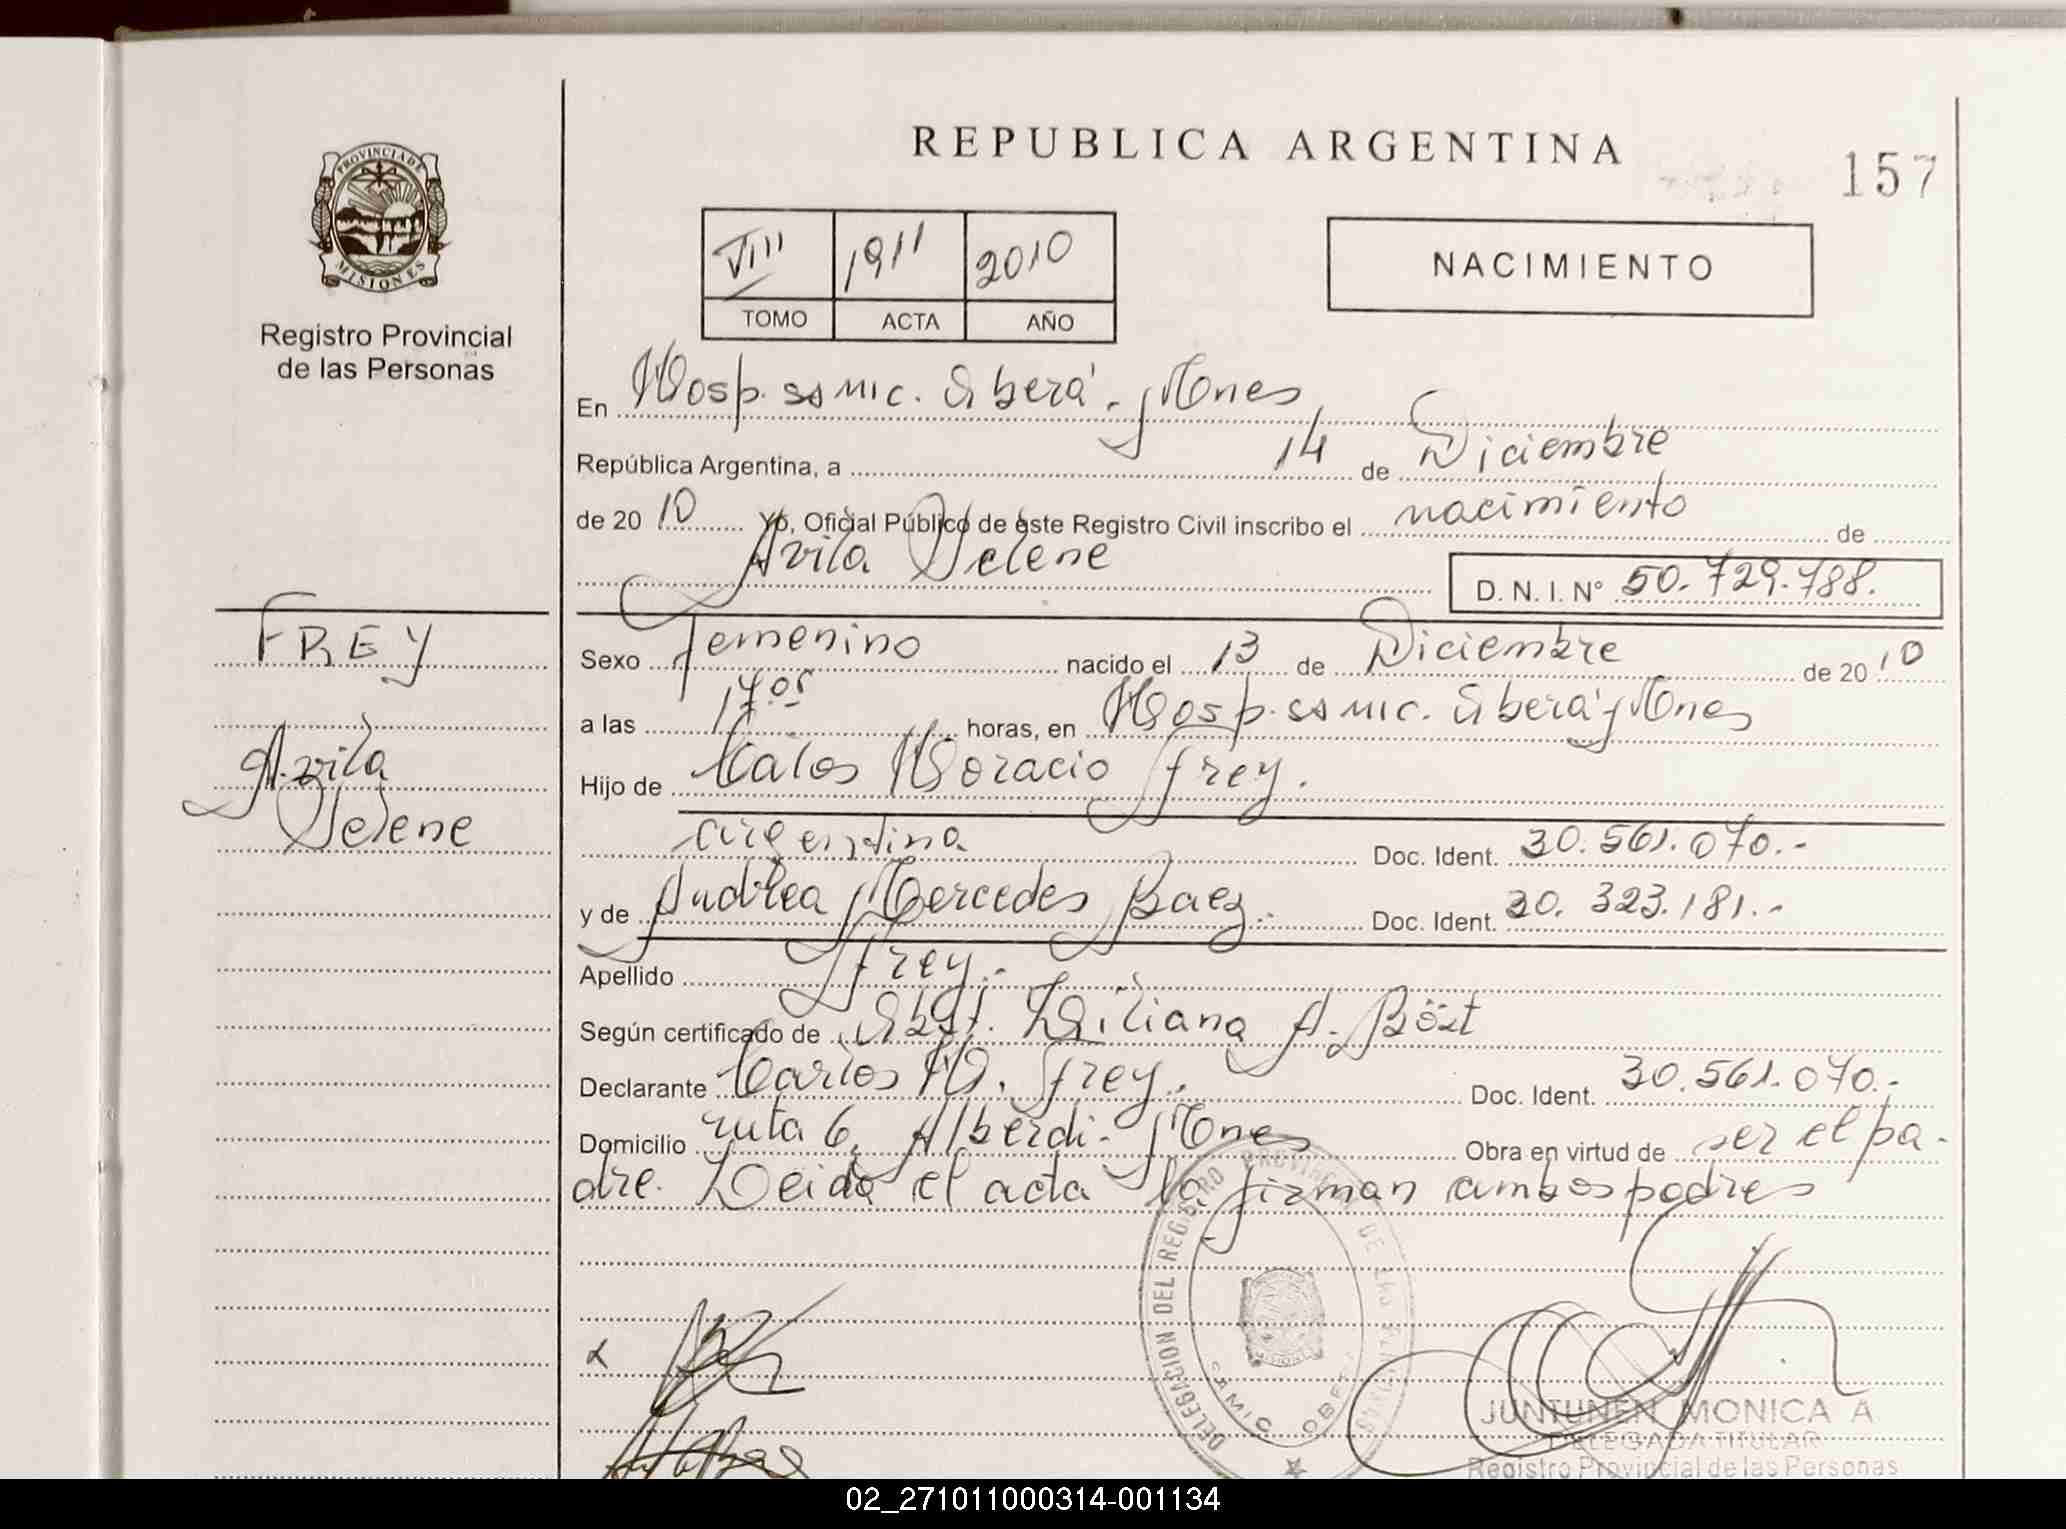 REPUBLICA ARGENTINA
157
PROVINCIA DE
MISIONES
Registro Provincial
de las Personas
VIII 1911 2010
TOMO ACTA AÑO
NACIMIENTO
En Hosp. SAMIC. Oberá. Mnes
República Argentina, a 14 de Diciembre
de 2010 Yo, Oficial Público de este Registro Civil inscribo el nacimiento de
Avila Selene
D. N. I. Nº 50.729.788.
FREY
Avila
Selene
Sexo Femenino nacido el 13 de Diciembre de 2010
a las 17.05 horas, en Hosp. SAMIC. Oberá. Mnes
Hijo de Calos Horacio Frey.
argentina Doc. Ident. 30.561.070.-
y de Andrea Mercedes Baez.- Doc. Ident. 30.323.181.-
Apellido Frey.-
Según certificado de Obst. Liliana A.
Declarante Carlos H. Frey. Doc. Ident. 30.561.070.-
Domicilio ruta 6, Alberdi- Mnes Obra en virtud de ser el pa-
dre. Leida el acta la firman ambos padres
DELEGACION DEL REGISTRO PROVINCIAL DE LAS PERSONAS
SAMIC OBERA
JUNTUNEN MONICA A
DELEGADA TITULAR
Registro Provincial de las Personas
02_271011000314-001134